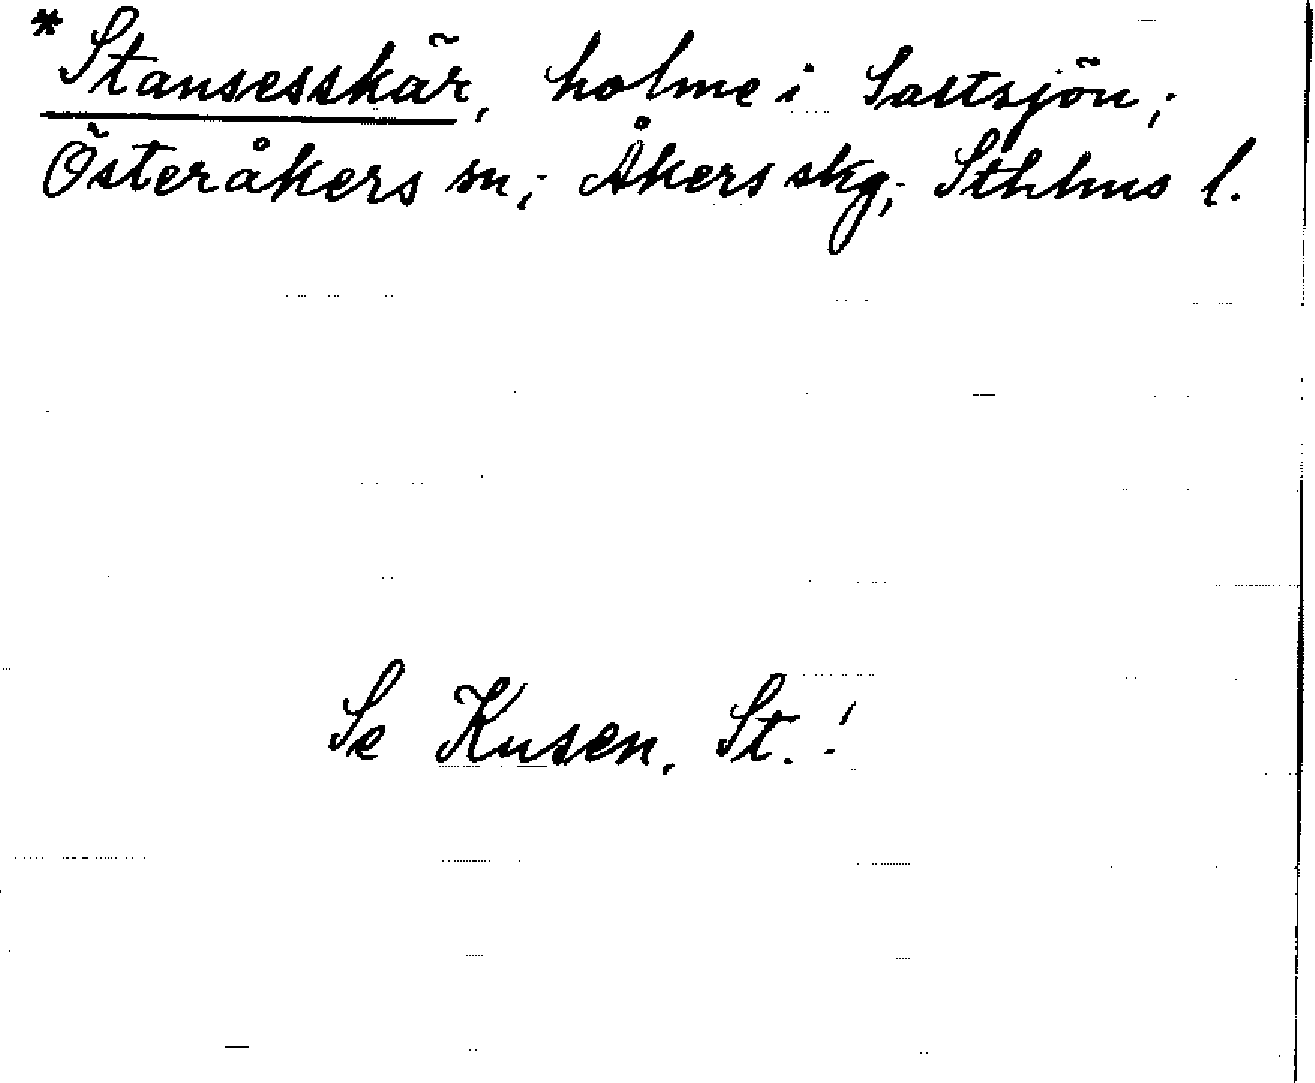 *Stansesskär, holme i Saltsjön;
Österåkers sn; Åkers skg; Sthlms l.
Se Kusen, St.!